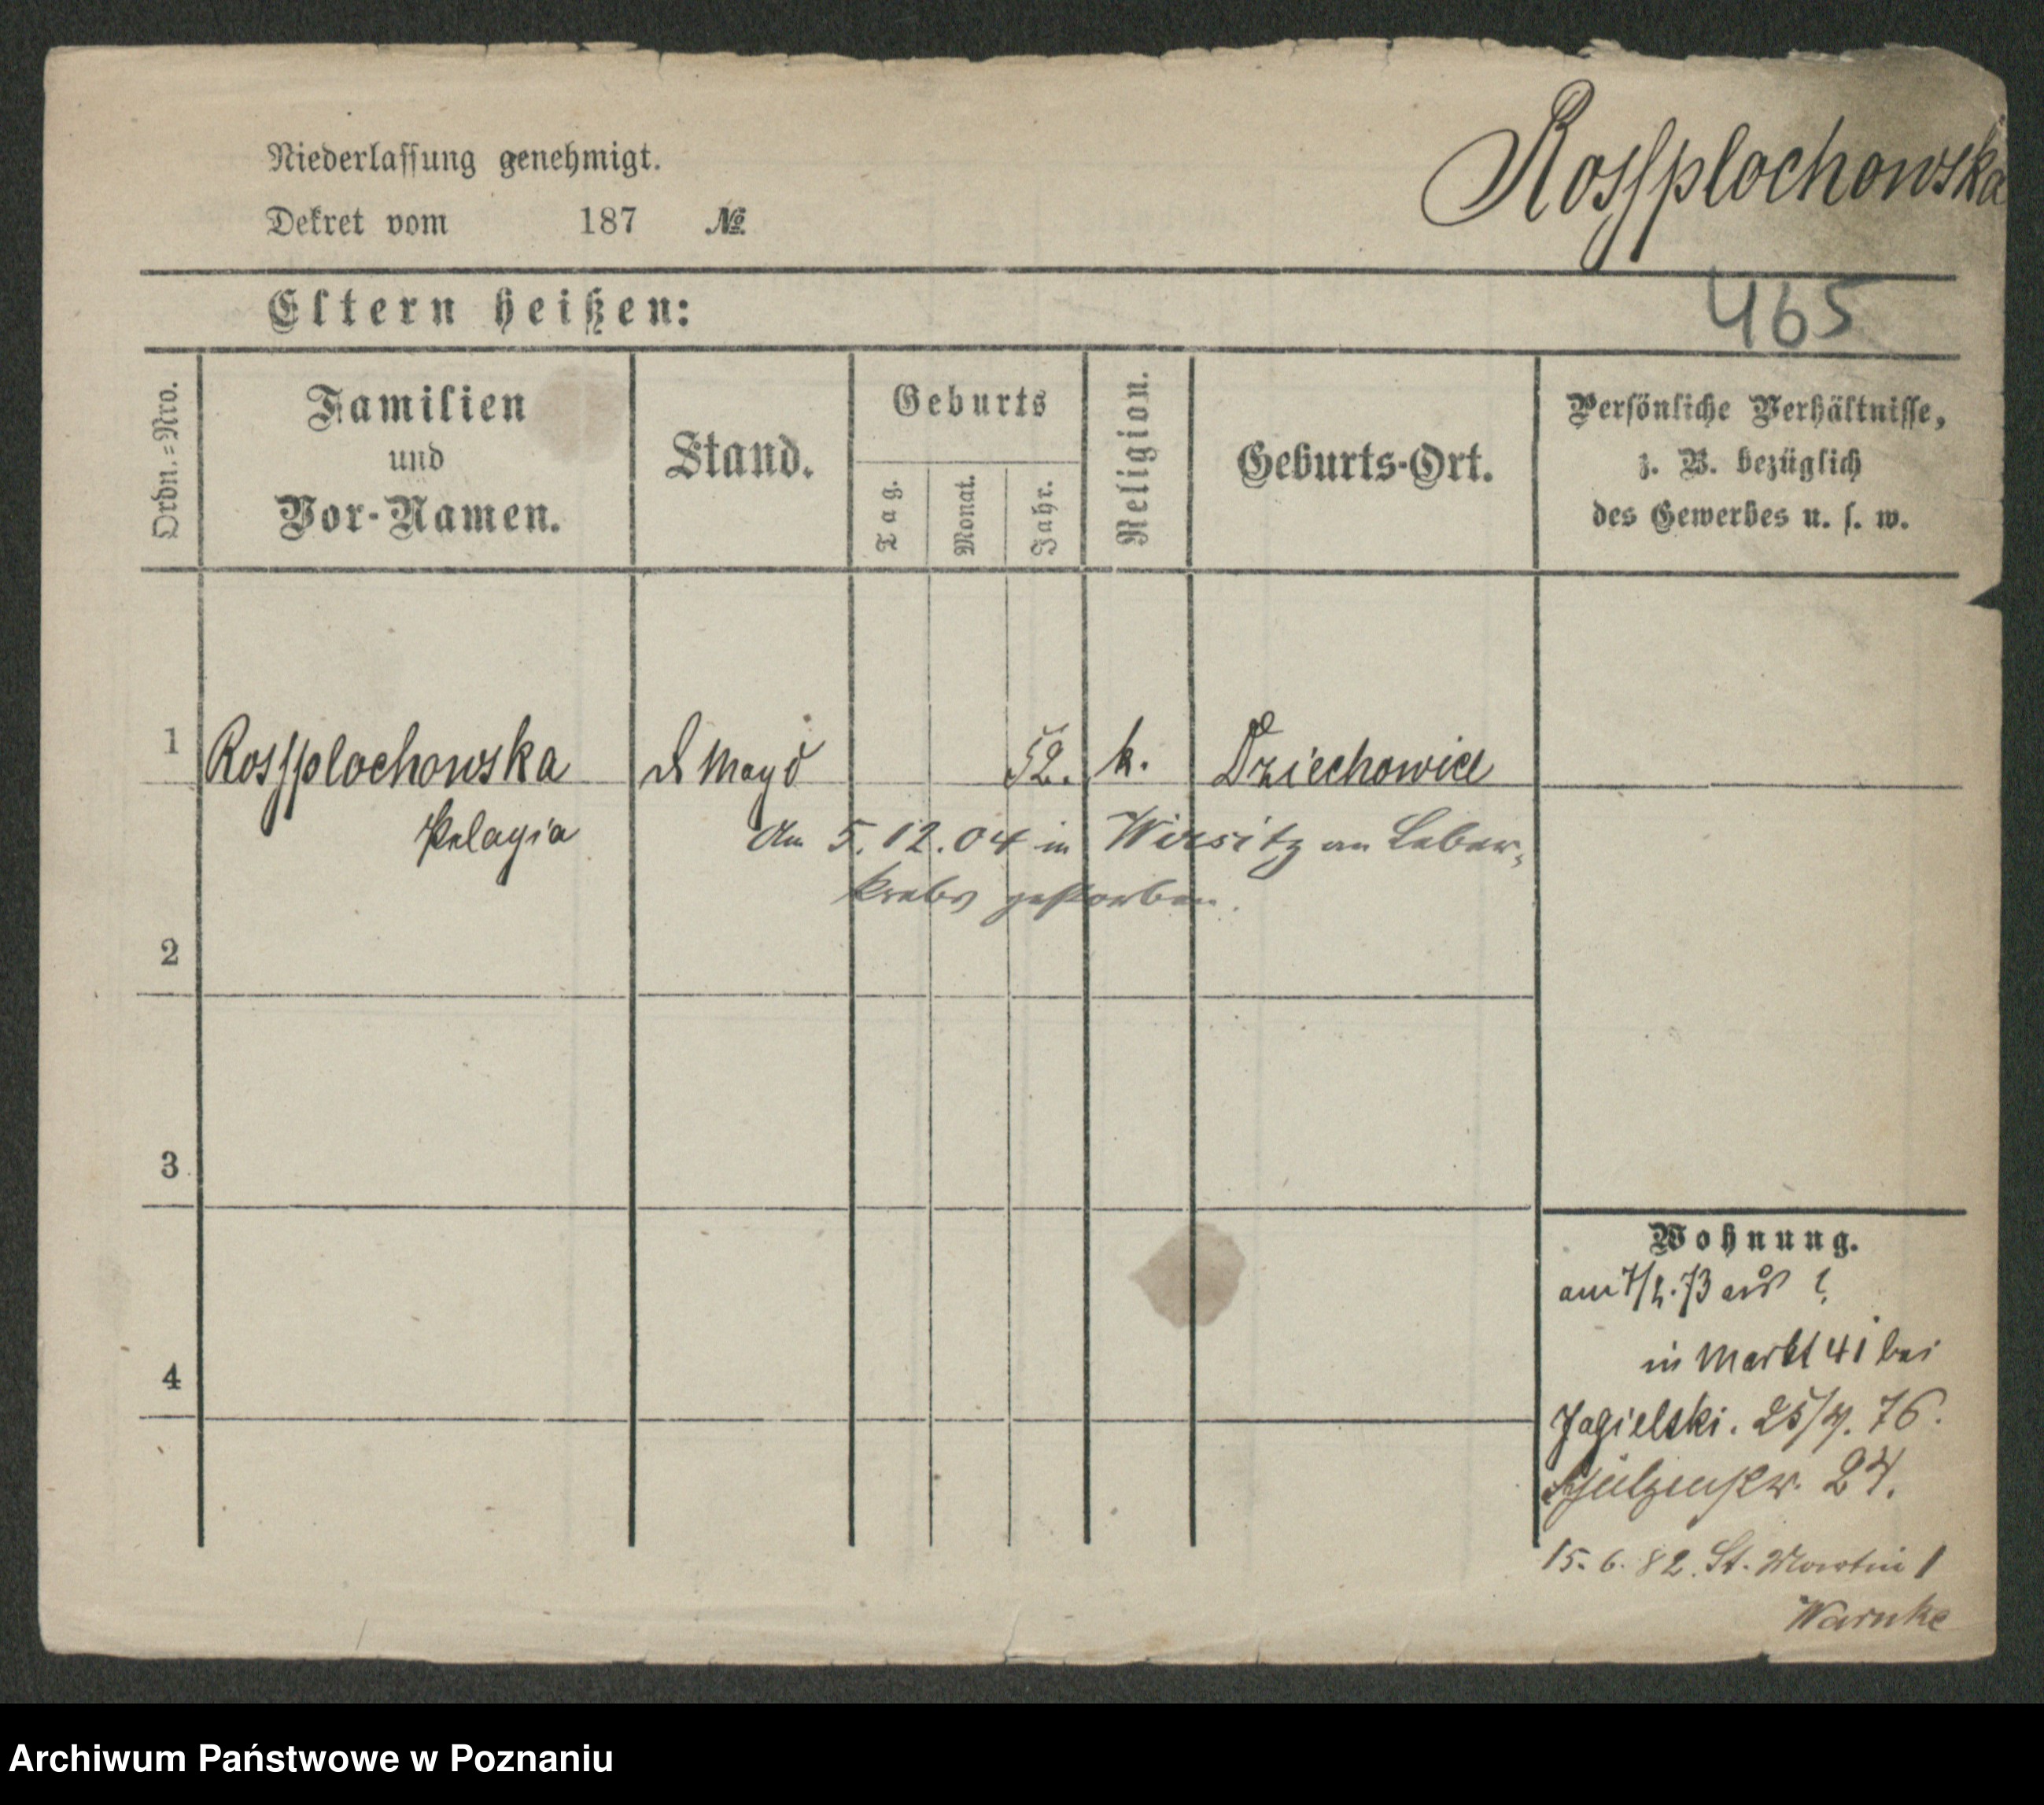 Niederlassung genehmigt.
Rossplochowska
Dekret vom 187 №
465
Eltern heißen:
Ordn.=Nro.
Familien
und
Vor-Namen.
Stand.
Geburts
Tag.
Monat.
Jahr.
Religion.
Geburts-Ort.
Persönliche Verhältnisse,
z. B. bezüglich
des Gewerbes u. s. w.
1 Rossplochowska d Magd 52. k. Dziechowice
Pelagia
Am 5.12.04 in Wirsitz an Leber-
krebs gestorben.
2
3
4
Wohnung.
am 73 aus ?
in Markt 41 bei
Jagielski. 76.
24.
15.6.82. St. Martin 1
Warnke
Archiwum Państwowe w Poznaniu